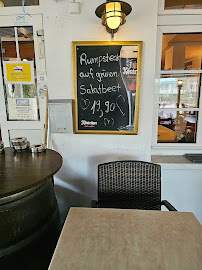 Rumpsteak
auf grünem
Salatbeet
19,90